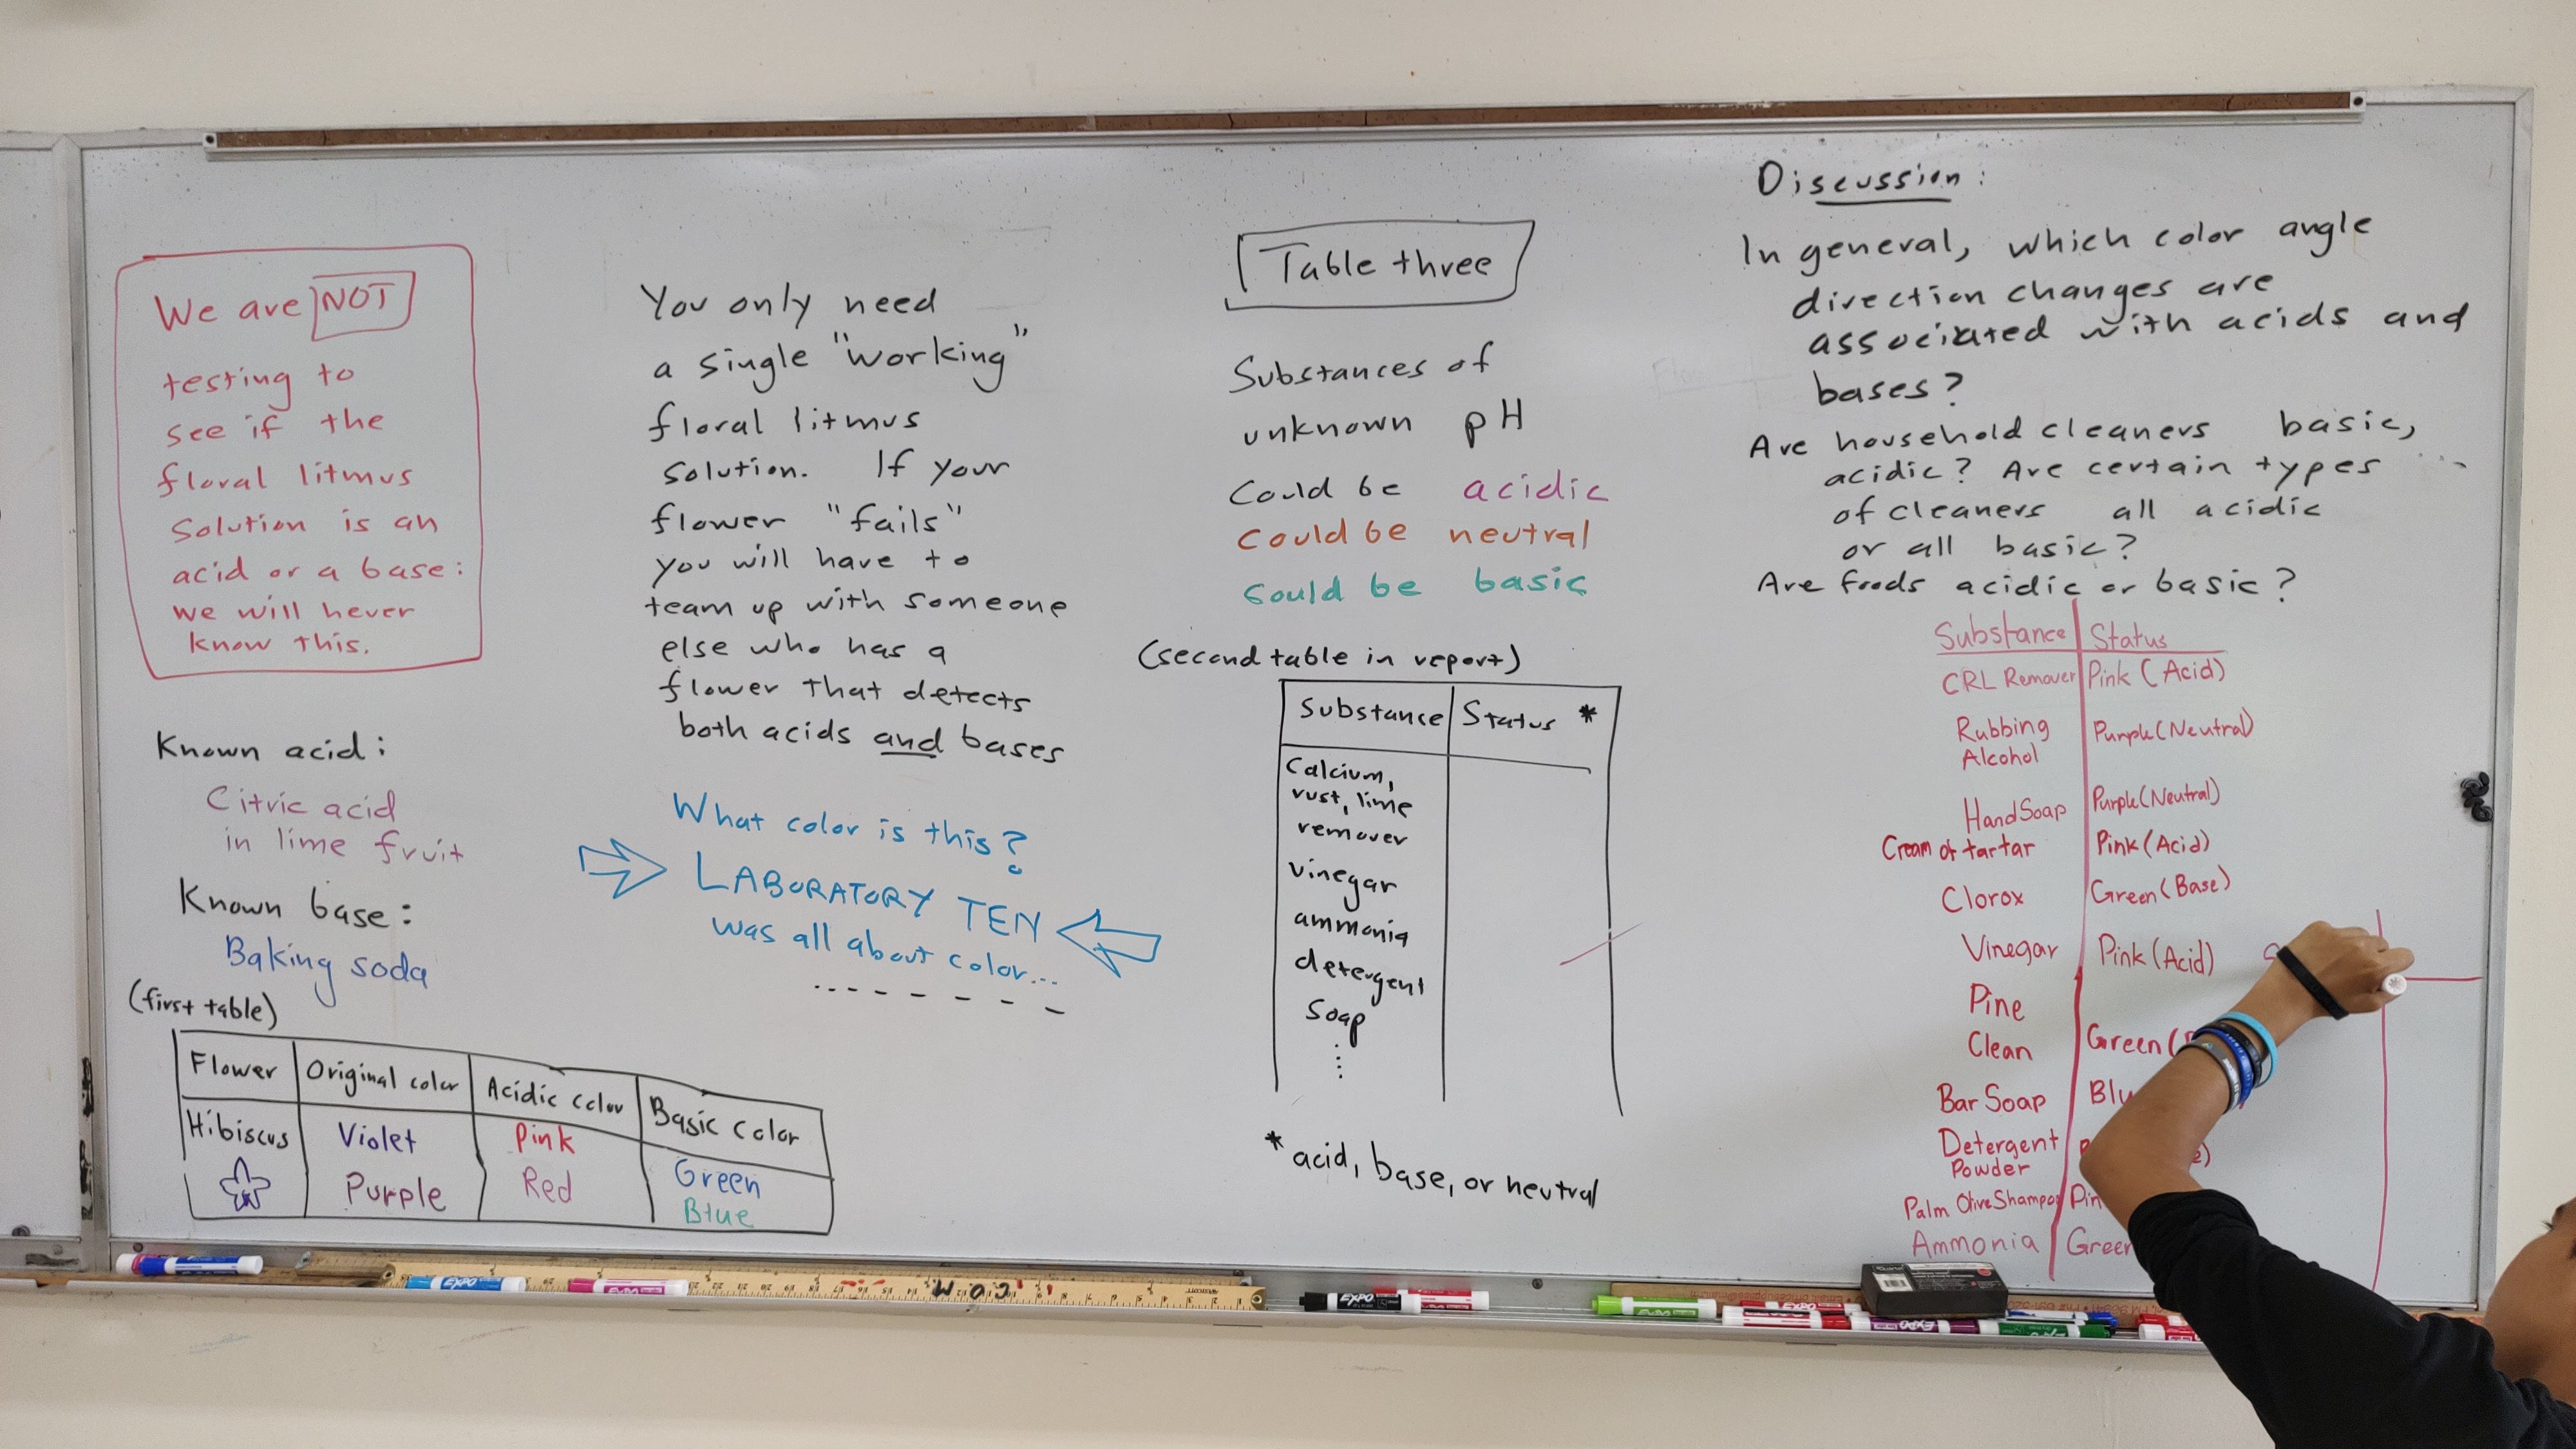 We are NOT
testing to
see if the
floral litmus
Solution is an
acid or a base:
we will never
know this.
Known acid:
Citric acid
in lime fruit
Known base:
Baking soda
(first table)
Flower Original color Acidic color Basic color
Hibiscus Violet Pink Green
Purple Red Blue
You only need
a single "working"
floral litmus
solution. If your
flower "fails"
you will have to
team up with someone
else who has a
flower that detects
both acids and bases
What color is this?
LABORATORY TEN
was all about color...
Table three
Substances of
unknown pH
Could be acidic
Could be neutral
Could be basic
(second table in report)
Substance Status *
Calcium,
rust, lime
remover
vinegar
ammonia
detergent
Soap
* acid, base, or neutral
Discussion:
In general, which color angle
direction changes are
associated with acids and
bases?
Are household cleaners basic,
acidic? Are certain types ...
of cleaners all acidic
or all basic?
Are foods acidic or basic?
Substance Status
CRL Remover Pink (Acid)
Rubbing Alcohol Purple (Neutral)
Hand Soap Purple (Neutral)
Cream of tartar Pink (Acid)
Clorox Green (Base)
Vinegar Pink (Acid)
Pine
Clean Green (
Bar Soap
Detergent
Powder
Palm Olive Shampoo
Ammonia Green
EXPO